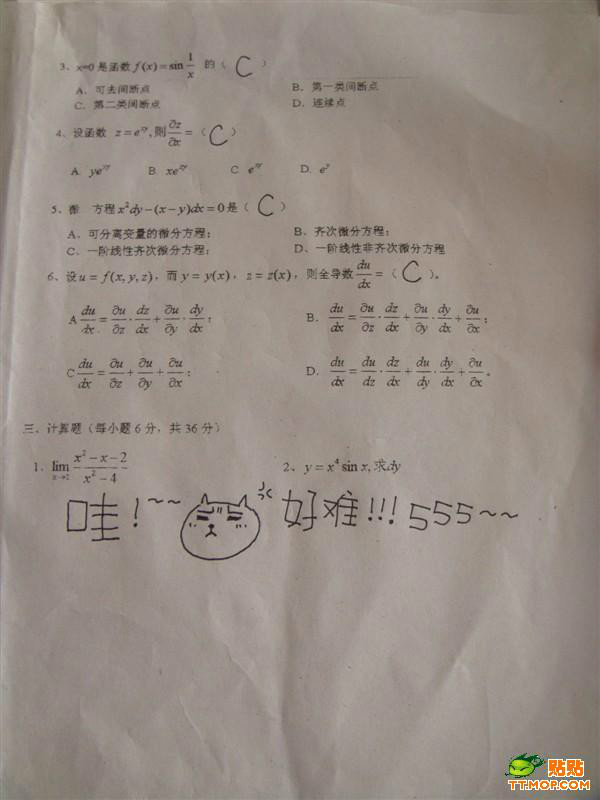 3、x=0 是函数 f(x)=sin 1/x 的（ C ）
A．可去间断点 B．第一类间断点
C．第二类间断点 D．连续点
4、设函数 z=e^{xy},则 ∂z/∂x =（ C ）
A. ye^{xy} B. xe^{xy} C. e^{xy} D. e^y
5、微 方程 x²dy−(x−y)dx=0 是（ C ）
A、可分离变量的微分方程； B、齐次微分方程；
C、一阶线性齐次微分方程； D、一阶线性非齐次微分方程
6、设 u=f(x,y,z)，而 y=y(x)，z=z(x)，则全导数 du/dx =（ C ）。
A du/dx = ∂u/∂z · dz/dx + ∂u/∂y · dy/dx； B． du/dx = ∂u/∂x + ∂u/∂z · dz/dx + ∂u/∂y · dy/dx + ∂u/∂x；
C du/dx = ∂u/∂z + ∂u/∂y + ∂u/∂x； D． du/dx = du/dz · dz/dx + du/dy · dy/dx + ∂u/∂x。
三、计算题（每小题 6 分，共 36 分）
1、lim x→2 (x²−x−2)/(x²−4) 2、y=x⁴ sin x,求dy
哇！~~ 好难!!! 555~~
贴贴
TT.MOP.COM